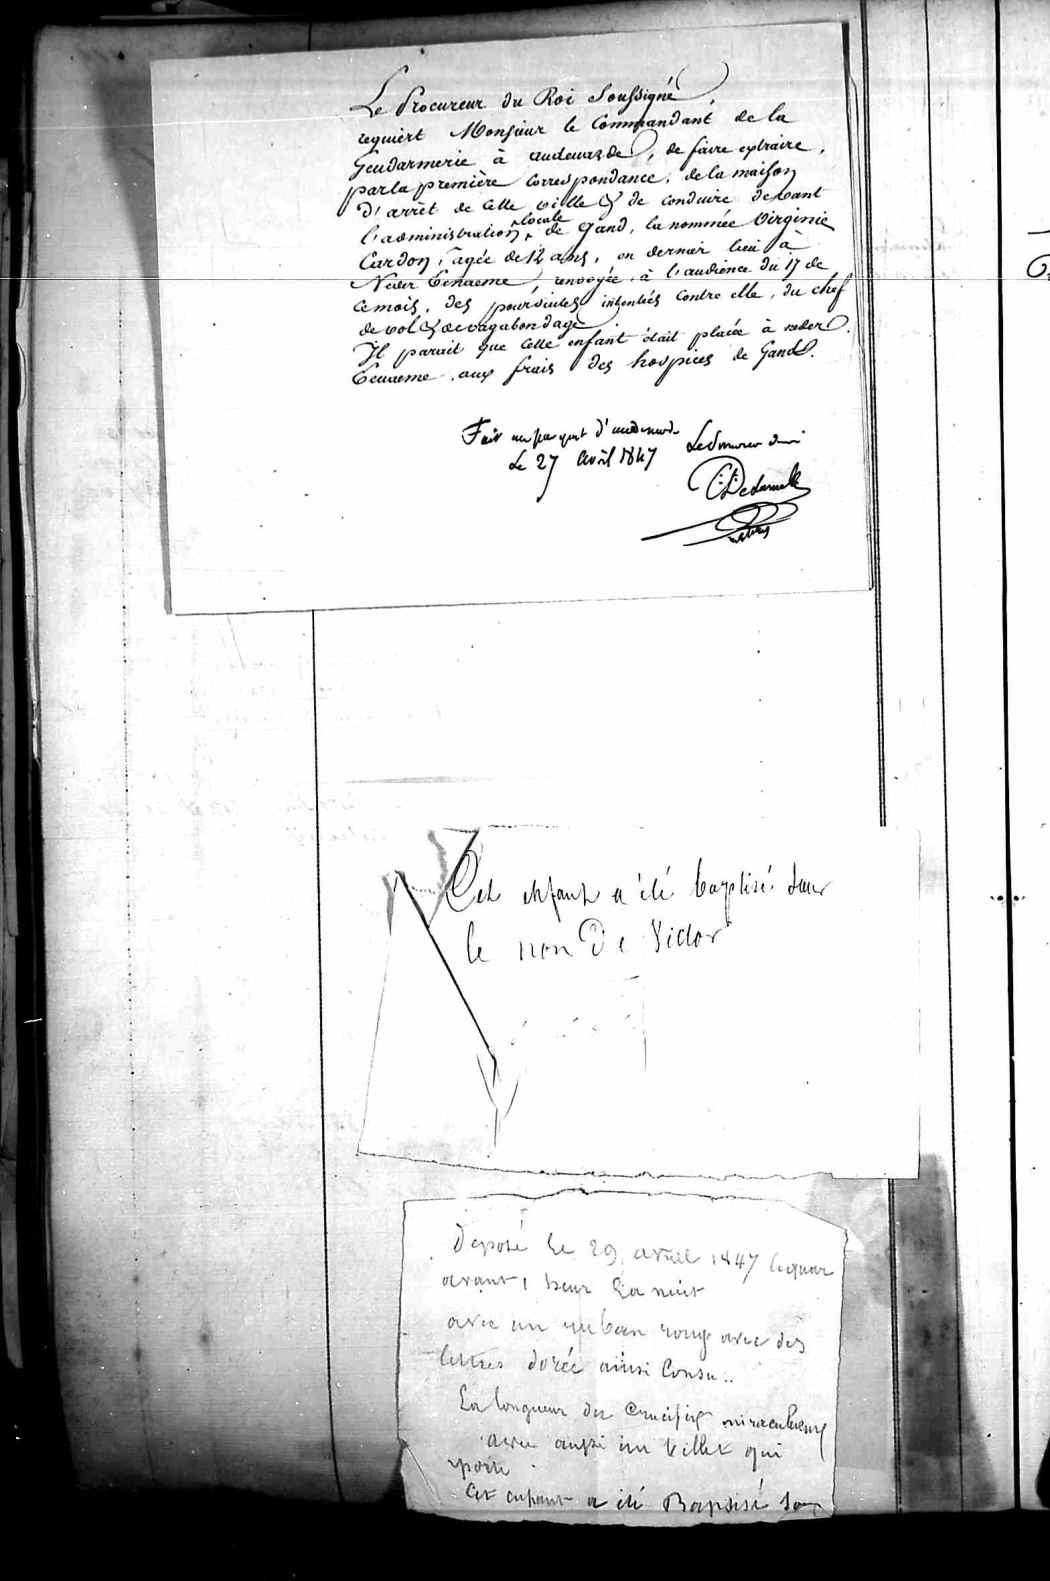 Le Procureur du Roi Soussigné
requiert Monsieur le Commandant de la
Gendarmerie à audenarde, de faire extraire,
par la première correspondance, de la maison
d'arrêt de cette ville & de conduire devant
l'administration locale de Gand, la nommée Virginie
Cardon, agée de 12 ans, en dernier lieu à
Neder Eenaeme, renvoyée, à l'audience du 17 de
ce mois, des poursuites intentées contre elle, du chef
de vol & de vagabondage.
Il parait que cette enfant était placée à neder
Eenaeme aux frais des hospices de Gand.
Fait au parquet d'audenarde
Le 27 avril 1847
Le Procureur du Roi
Cet enfant a été baptisé sous
le non De Victor
Deposé le 29 avril 1847 le quar
avant 1 heur La nuit
avec un ruban rouge avec des
lettres dorée ainsi Consu..
La longueur du Crucifix miraculeux
avec aussi un billet qui
porte
Cet enfant a été Baptisé sous